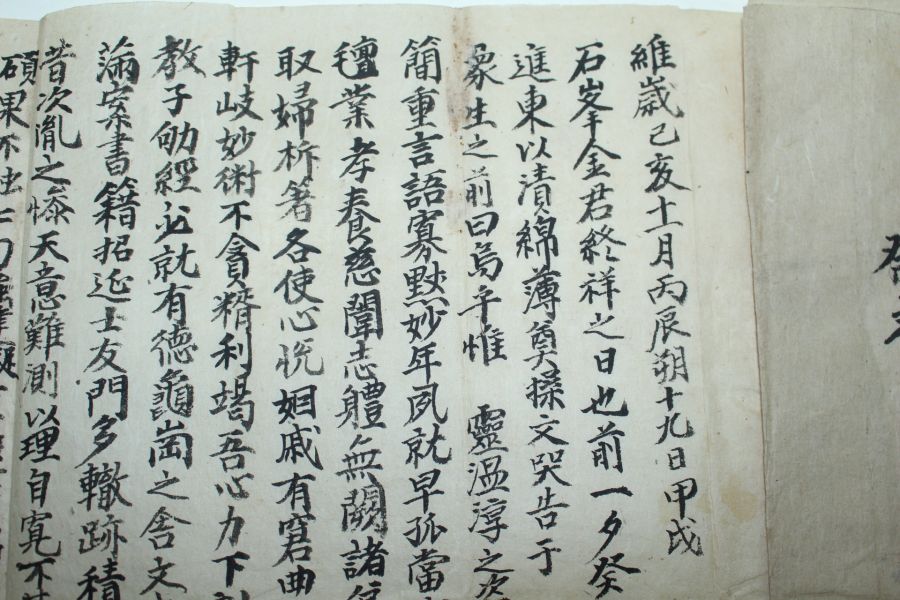 維歲己亥十一月丙辰朔十九日甲戌
石峯金君終祥之日也前一夕癸
進東以漬綿薄奠操文哭告于
象生之前曰烏乎惟 靈溫淳之姿
簡重言語寡默妙年夙就早孤當
業孝養慈闈志軆無闕諸
取婦析箸各使心悅姻戚有窘曲
軒岐妙術不貪糈利竭吾心力下
教子劬經必就有德龜崗之舍文
滿案書籍招延士友門多轍跡積
昔次胤之慘天意難測以理自寬不
碩果不虫